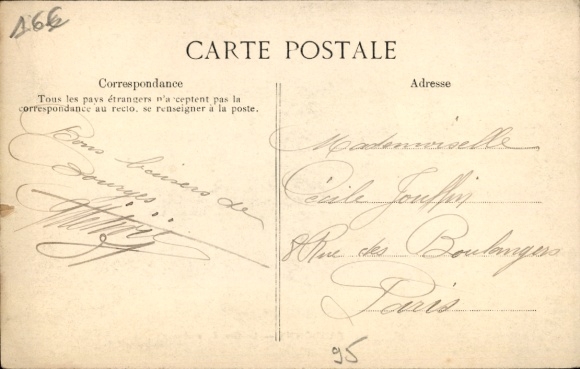 166
CARTE POSTALE
Correspondance
Tous les pays étrangers n'acceptent pas la
correspondance au recto, se renseigner à la poste.
Bons baisers de
Adresse
Mademoiselle
Cécile
8 Rue des Boulangers
Paris
95